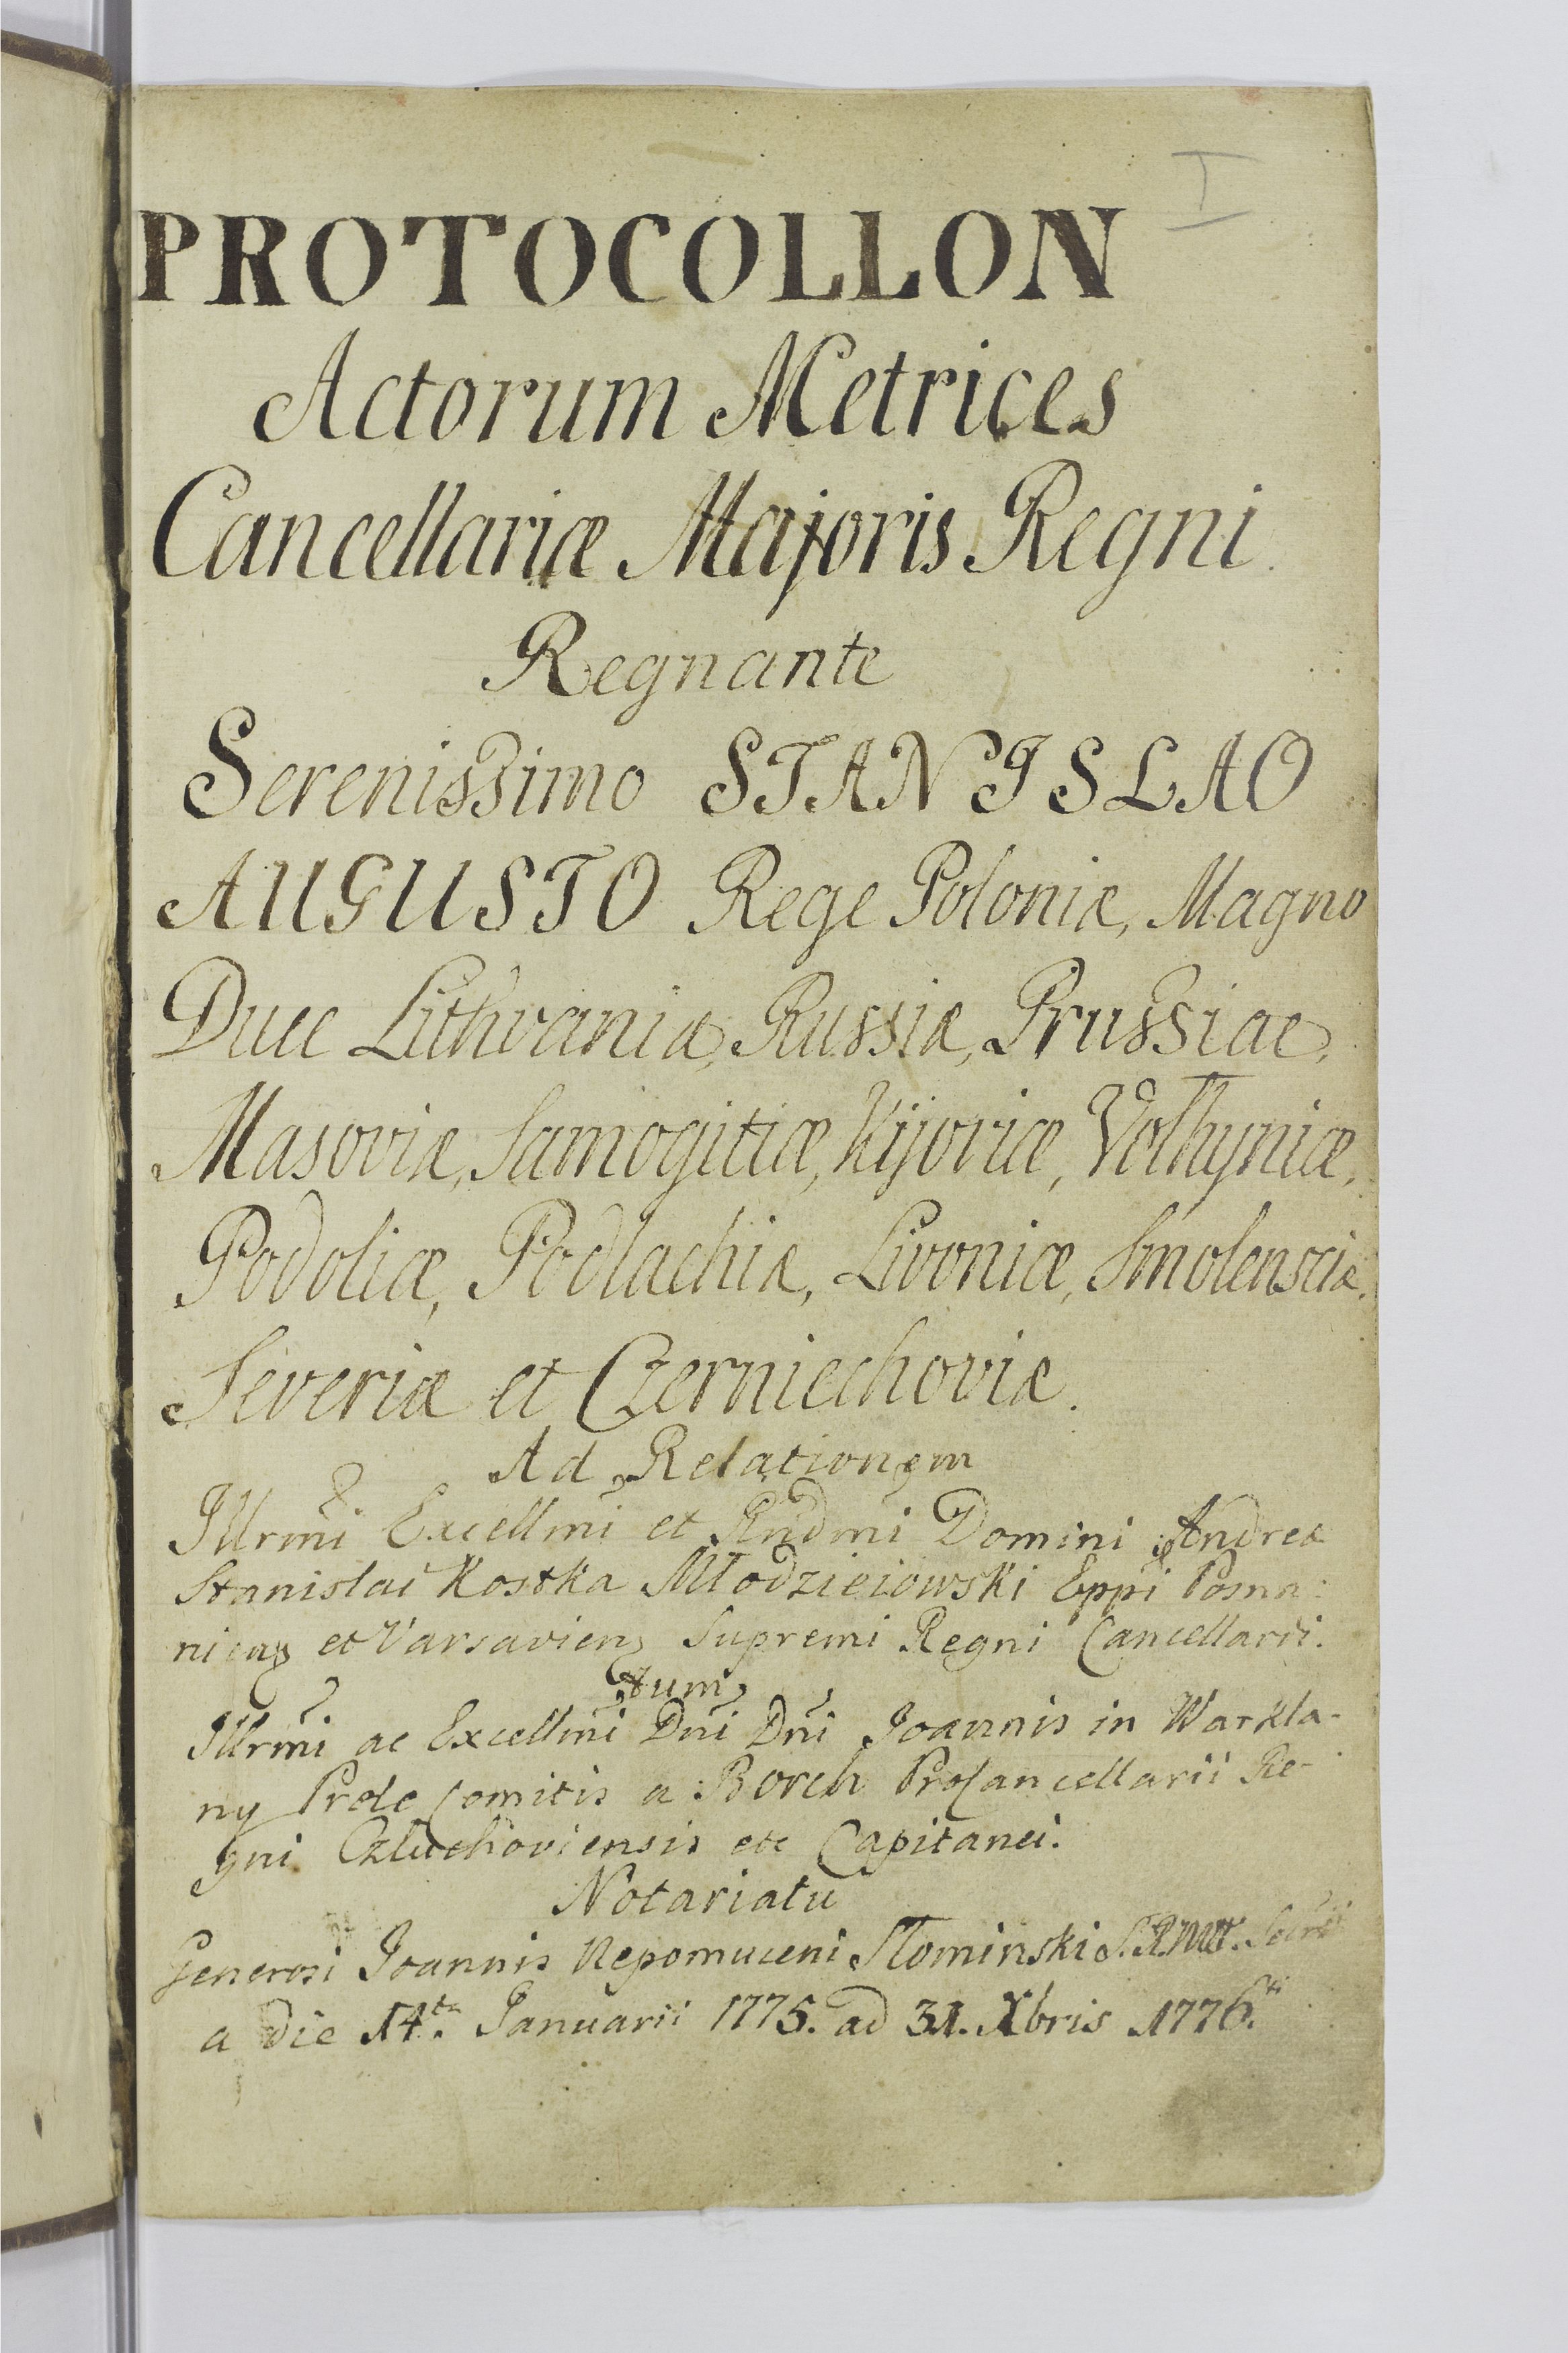 I
PROTOCOLLON
Actorum Metrices
Cancellariæ Majoris Regni
Regnante
Serenissimo STANISLAO
AUGUSTO Rege Poloniæ, Magno
Duce Lithvaniæ, Russiæ, Prussiae,
Masoviæ, Samogitiæ, Kijoviæ, Volhyniæ,
Podoliæ, Podlachiæ, Livoniæ, Smolensciæ,
Severiæ et Czerniechoviæ.
Ad Relationem
Illrmi Excellmi et Rndmi Domini Andreæ
Stanislai Kostka Młodzieiowski Eppi Posna:
niens et Varsaviens Supremi Regni Cancellarii.
Tum
Illrmi ac Excellmi Dni Dni Joannis in Warkla-
ny Prele Comitis a Borch ProCancellarii Re-
gni Człuchoviensis etc Capitanei.
Notariatu
Generosi Joannis Nepomuceni Słominski S.R.Mtt.
a die 14ta. Januarii 1775. ad 31. Xbris 1776.ti